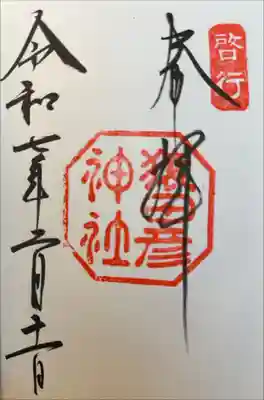 啓行
奉拝
猿田彦
神社
令和七年二月十一日